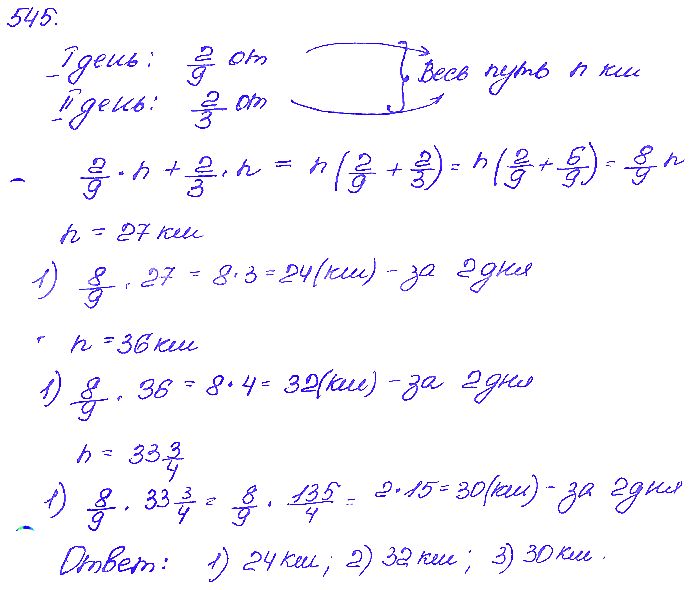 545.
I день: 2/9 от
Весь путь n км
II день: 2/3 от
2/9 · n + 2/3 · n = n(2/9 + 2/3) = n(2/9 + 6/9) = 8/9 n
n = 27 км
1) 8/9 · 27 = 8 · 3 = 24(км) - за 2 дня
n = 36 км
1) 8/9 · 36 = 8 · 4 = 32(км) - за 2 дня
n = 33 3/4
1) 8/9 · 33 3/4 = 8/9 · 135/4 = 2 · 15 = 30(км) - за 2 дня
Ответ: 1) 24 км; 2) 32 км; 3) 30 км.